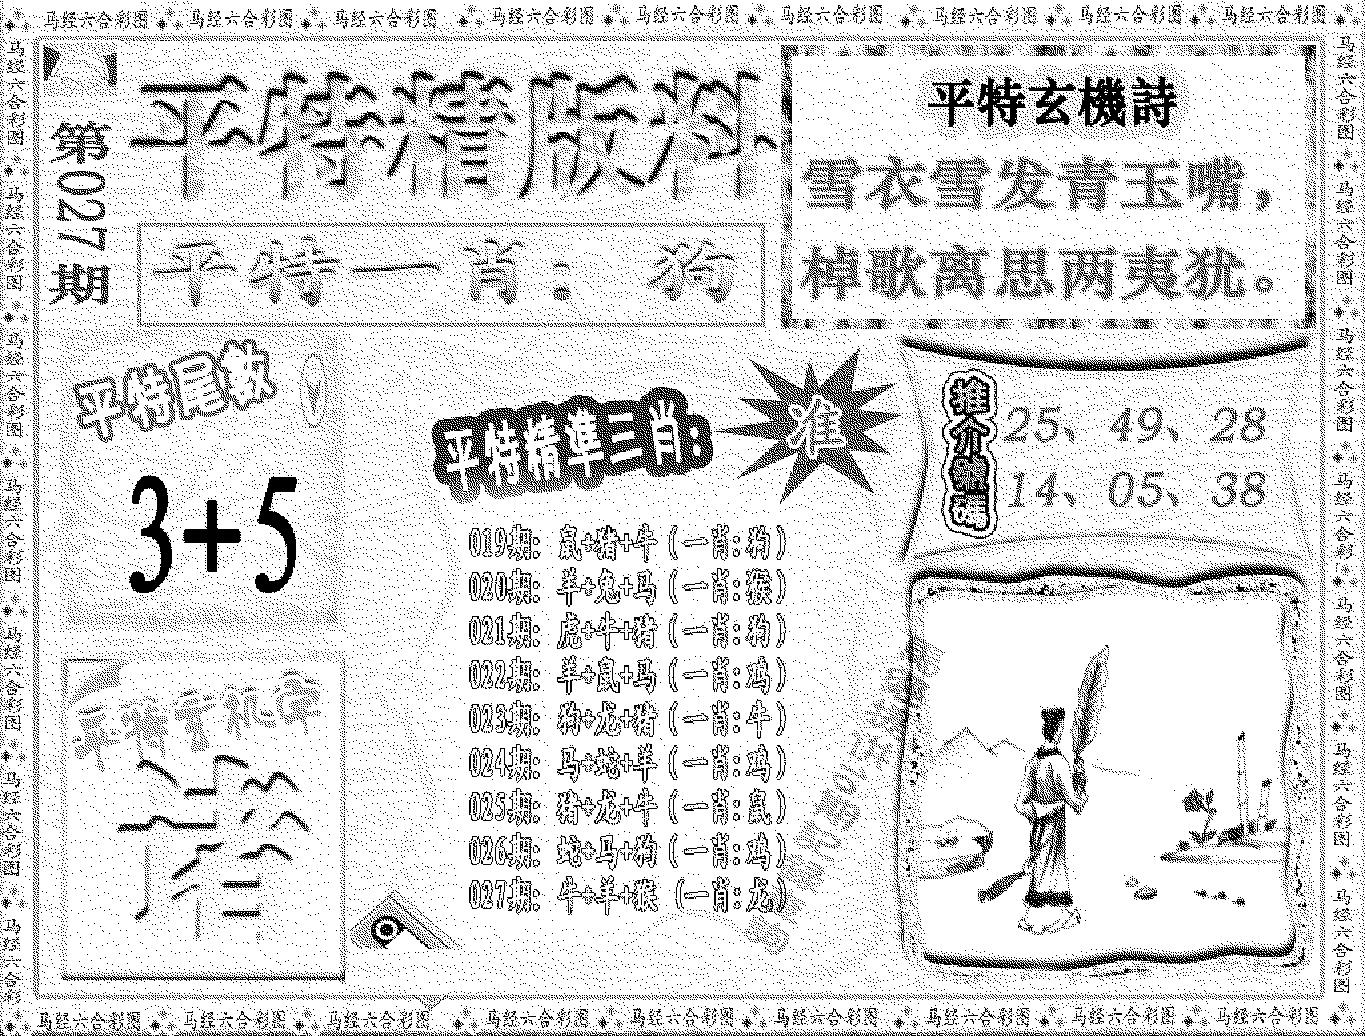 马经六合彩图 马经六合彩图 马经六合彩图 马经六合彩图 马经六合彩图 马经六合彩图 马经六合彩图 马经六合彩图 马经六合彩图
第027期
平特精版料
平特一肖：狗
平特玄機詩
雪衣雪发青玉嘴，
棹歌离思两夷犹。
平特尾数
3+5
平特精準三肖:
准
019期: 鼠+猪+牛 (一肖:狗)
020期: 羊+兔+马 (一肖:猴)
021期: 虎+牛+猪 (一肖:狗)
022期: 羊+鼠+马 (一肖:鸡)
023期: 狗+龙+猪 (一肖:牛)
024期: 马+蛇+羊 (一肖:鸡)
025期: 猪+龙+牛 (一肖:鼠)
026期: 蛇+马+狗 (一肖:鸡)
027期: 牛+羊+猴 (一肖:龙)
推介號碼
25、49、28
14、05、38
平特玄机字
马经六合彩图 马经六合彩图 马经六合彩图 马经六合彩图 马经六合彩图 马经六合彩图 马经六合彩图 马经六合彩图 马经六合彩图